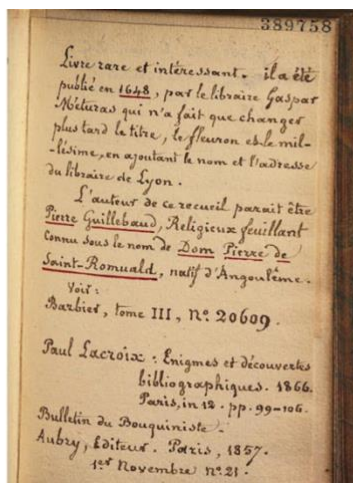 389758
Livre rare et intéressant. il a été
publié en 1648, par le libraire Gaspar
Méturas qui n'a fait que changer
plus tard le titre, le fleuron et le mil-
-lésime, en ajoutant le nom et l'adresse
du libraire de Lyon.
L'auteur de ce recueil parait être
Pierre Guillebaud, Religieux feuillant
connu sous le nom de Dom Pierre de
Saint-Romuald, natif d'Angoulême.
Voir:
Barbier, tome III, No. 20609.
Paul Lacroix: Enigmes et découvertes
bibliographiques. 1866.
Paris, in 12. pp. 99-106.
Bulletin du Bouquiniste.
Aubry, Editeur. Paris, 1857.
1er Novembre no. 21.